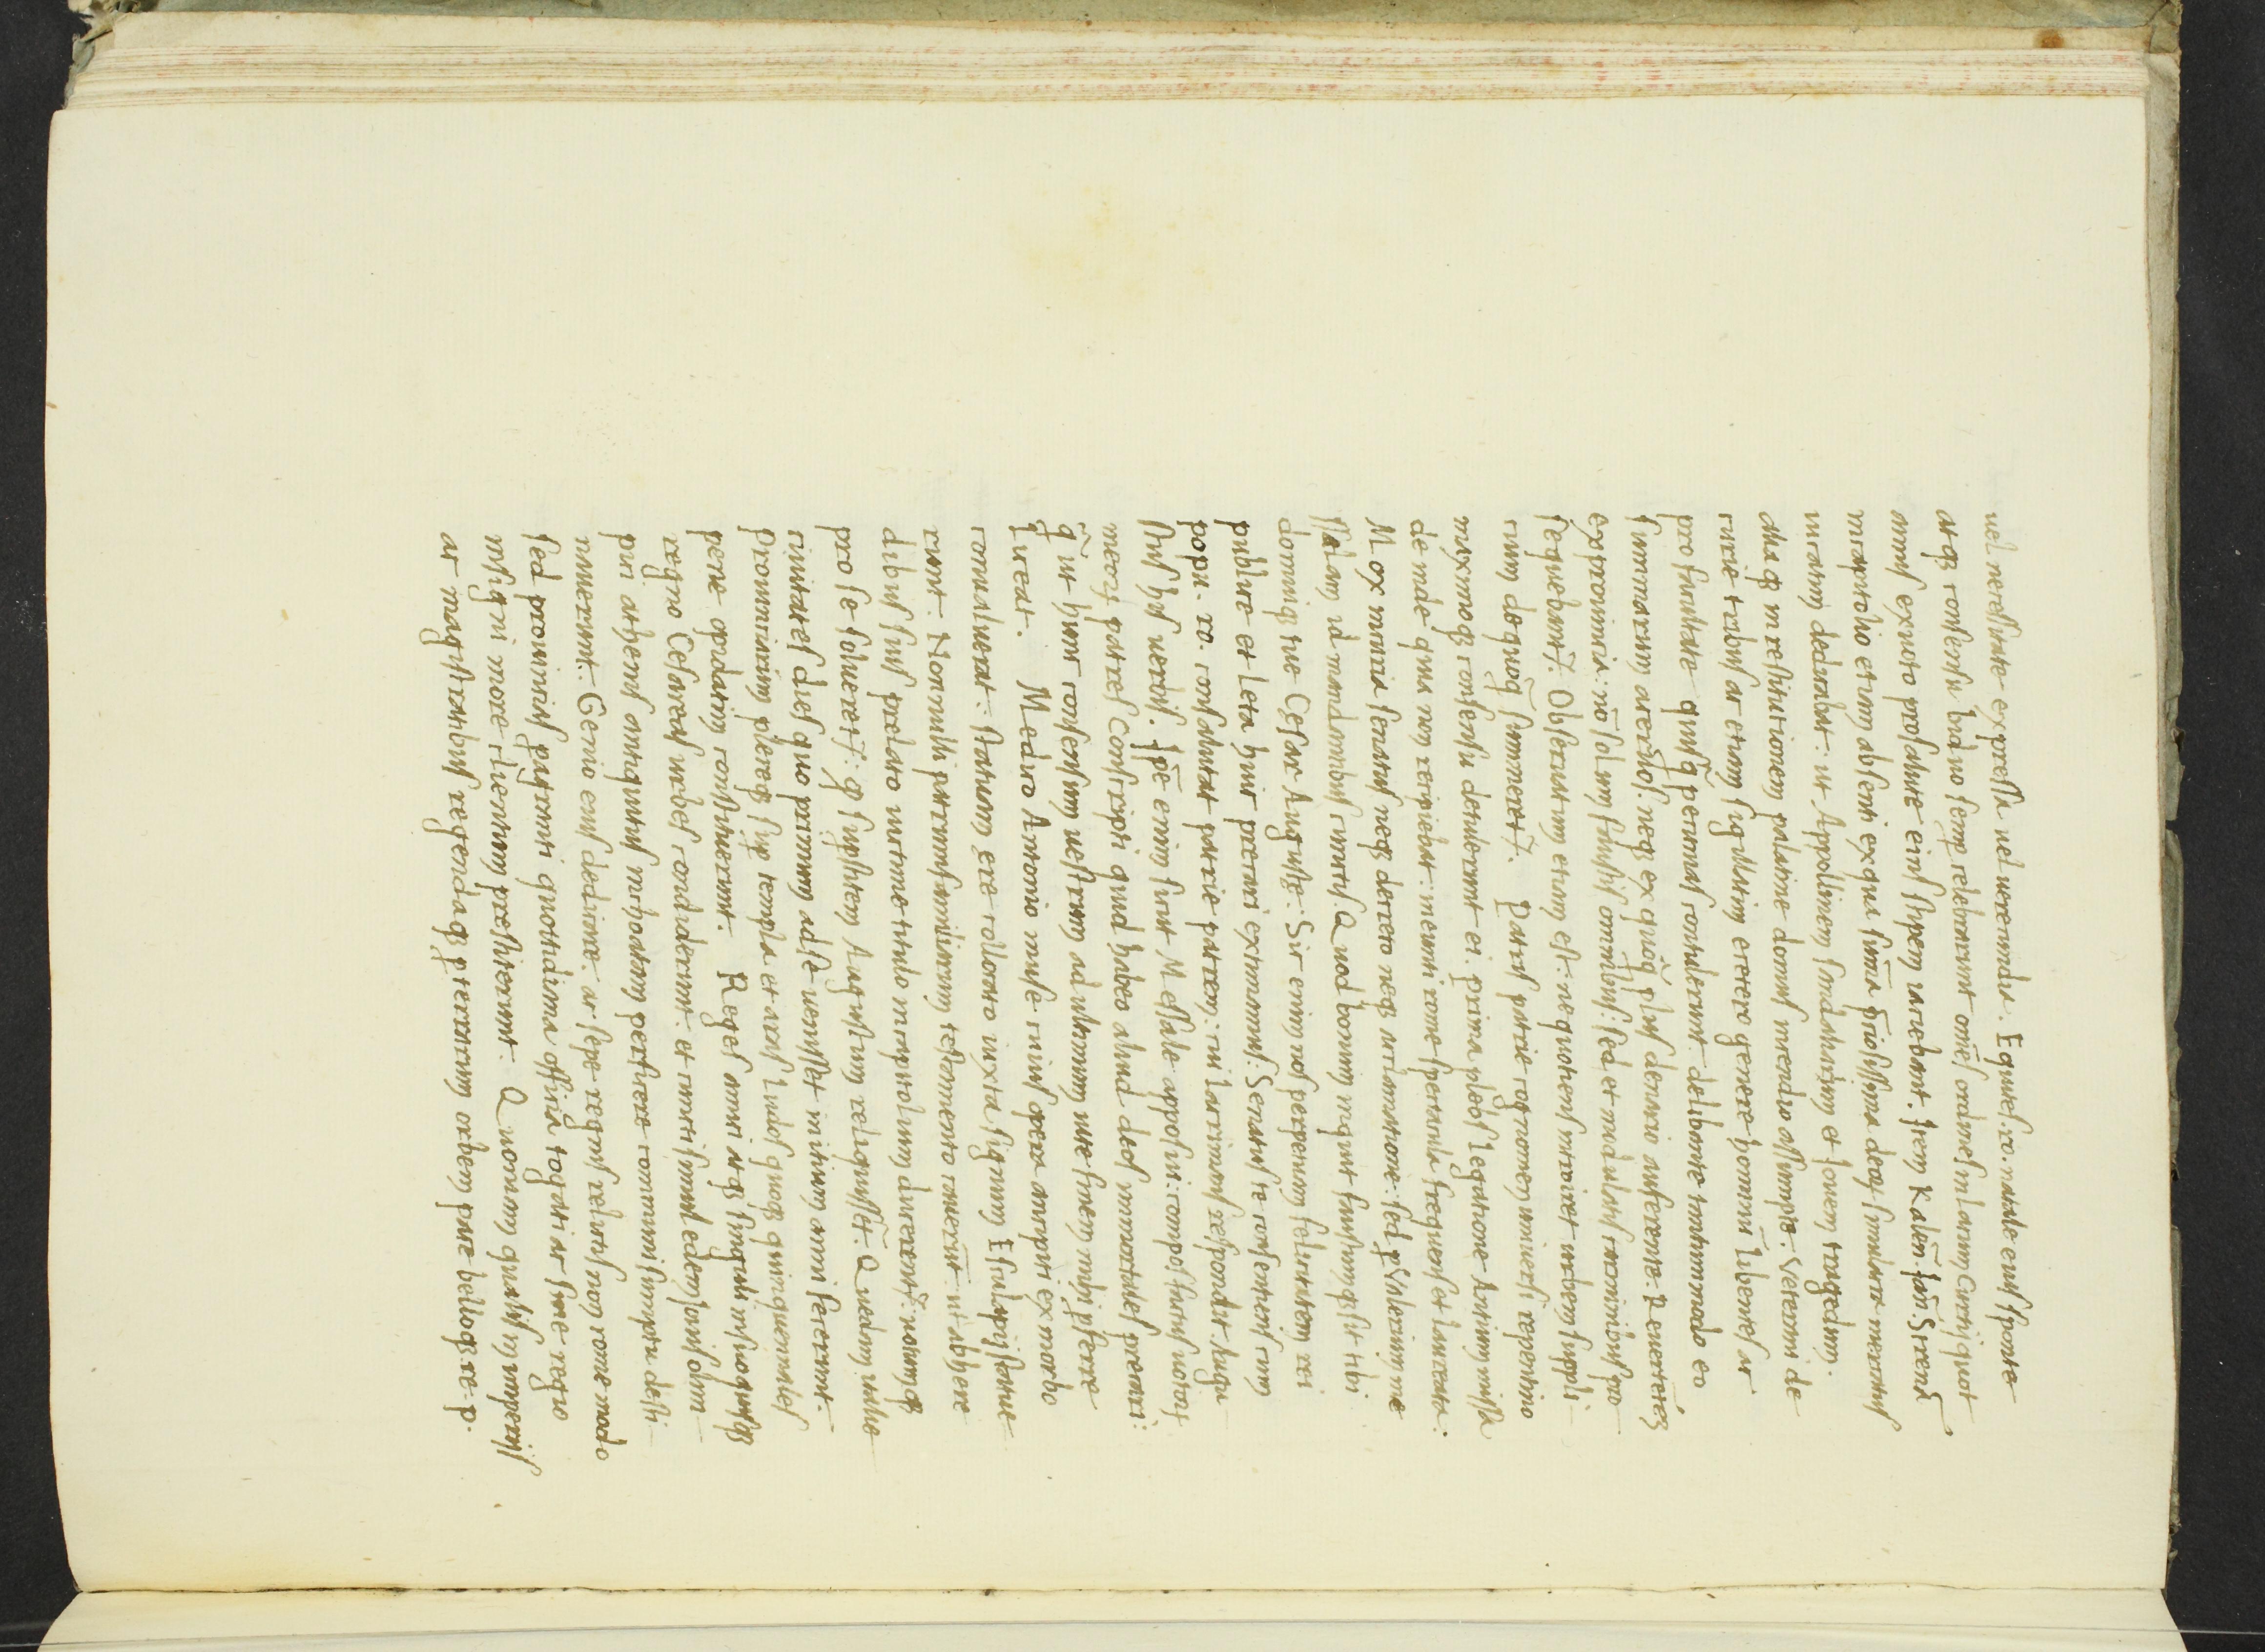 uel neceſſitate expreſſa uel uerecundia. Equites. ro. natale eius ſponte
atq; conſenſu biduo ſemp celebrarunt. om̄es ordines in lacum Curtij quot
annis ex uoto pro ſalute eius ſtipem iaciebant. Item Kalēn. Iāñ. Strenā
in capitolio etiam abſenti ex qua ſum̄a p̄tioſiſſima deoꝝ ſimulacra mercatus
uicatim dedicabat: ut Appollinem ſandaliarium et Iouem tragedum.
alia q; in reſtitutionem palatine domus incendio aſſumpte: Veterani de
curie tribus ac etiam ſigillatim e cetero genere hominū libentes ac
pro facultate quiſq; pecunias contulerunt: delibante tantummodo eo
ſummarum aceruos. neq; ex quoq̄ plus denario auferente. Reuertētēq;
ex prouincia. nō ſolum fauſtis ominibus: ſed et modulatis carminibus pro
ſequebantꝰ. Obſeruatum etiam eſt: ne quotiens introiret urbem ſuppli
cium de quoq̄ ſumeretꝰ. Patris patrie cognomen uniuerſi repentino
maximoq; conſenſu detulerunt ei. prima plebs legatione Antium miſſa
deinde quia non recipiebat: ineunti rome ſpectacula frequens et laureata.
Mox in curia ſenatus neq; decreto neq; acclamatione: ſed p Valerium me
ſſalam id mandantibus cunctis. Quod bonum inquit fauſtumq; ſit tibi
domuiq; tue Ceſar Auguſte: Sic enim nos perpetuam felicitatem rei
publice et leta huic precari exiſtimamus: Senatus te conſentiens cum
popu. ro. conſalutat patrie patrem: cui lacrimans reſpondit Augu
ſtus his uerbis. Ip̄ē enim ſunt Meſſale appoſui: compos factus uotoꝝ
meoꝝ patres conſcripti quid habeo aliud deos immortales precari:
q̄ ut hunc conſenſum ueſtrum ad ultimum uite finem mihi pferre
liceat. Medico Antonio muſe cuius opera ancipiti ex morbo
conualuerat: ſtatuam ere collato iuxta ſignum Eſculapij ſtatue
runt. Nonnulli patrumfamiliarum teſtamento cauerūt: ut ab here
dibus ſuis prelato uictime titulo in capitolium ducerentꝰ: uotumq;
pro ſe ſolueretꝰ: q ſupſtitem Auguſtum reliquiſſēt. Quedam italie
ciuitates diem quo primum ad ſe ueniſſet initium anni fecerunt.
Prouinciarum pleręq; ſup templa et aras ludos quoq; quinquennales
pene opidatim conſtituerunt. Reges amici atq; ſinguli in ſuo quiſq;
regno Ceſareas urbes condiderunt: et cuncti ſimul edem Iouis olim
pii athenis antiquitus inchoatam perficere communi ſumptu deſti
nauerunt: Genio eius dedicare. ac ſepe regnis relictis non rome modo
ſed prouincias pagranti quottidiana officia togati ac ſine regio
inſigni more clientum preſtiterunt. Quoniam qualis in imperijſ
ac magiſtratibus regendaq; p terrarum orbem pace belloq; re. p.